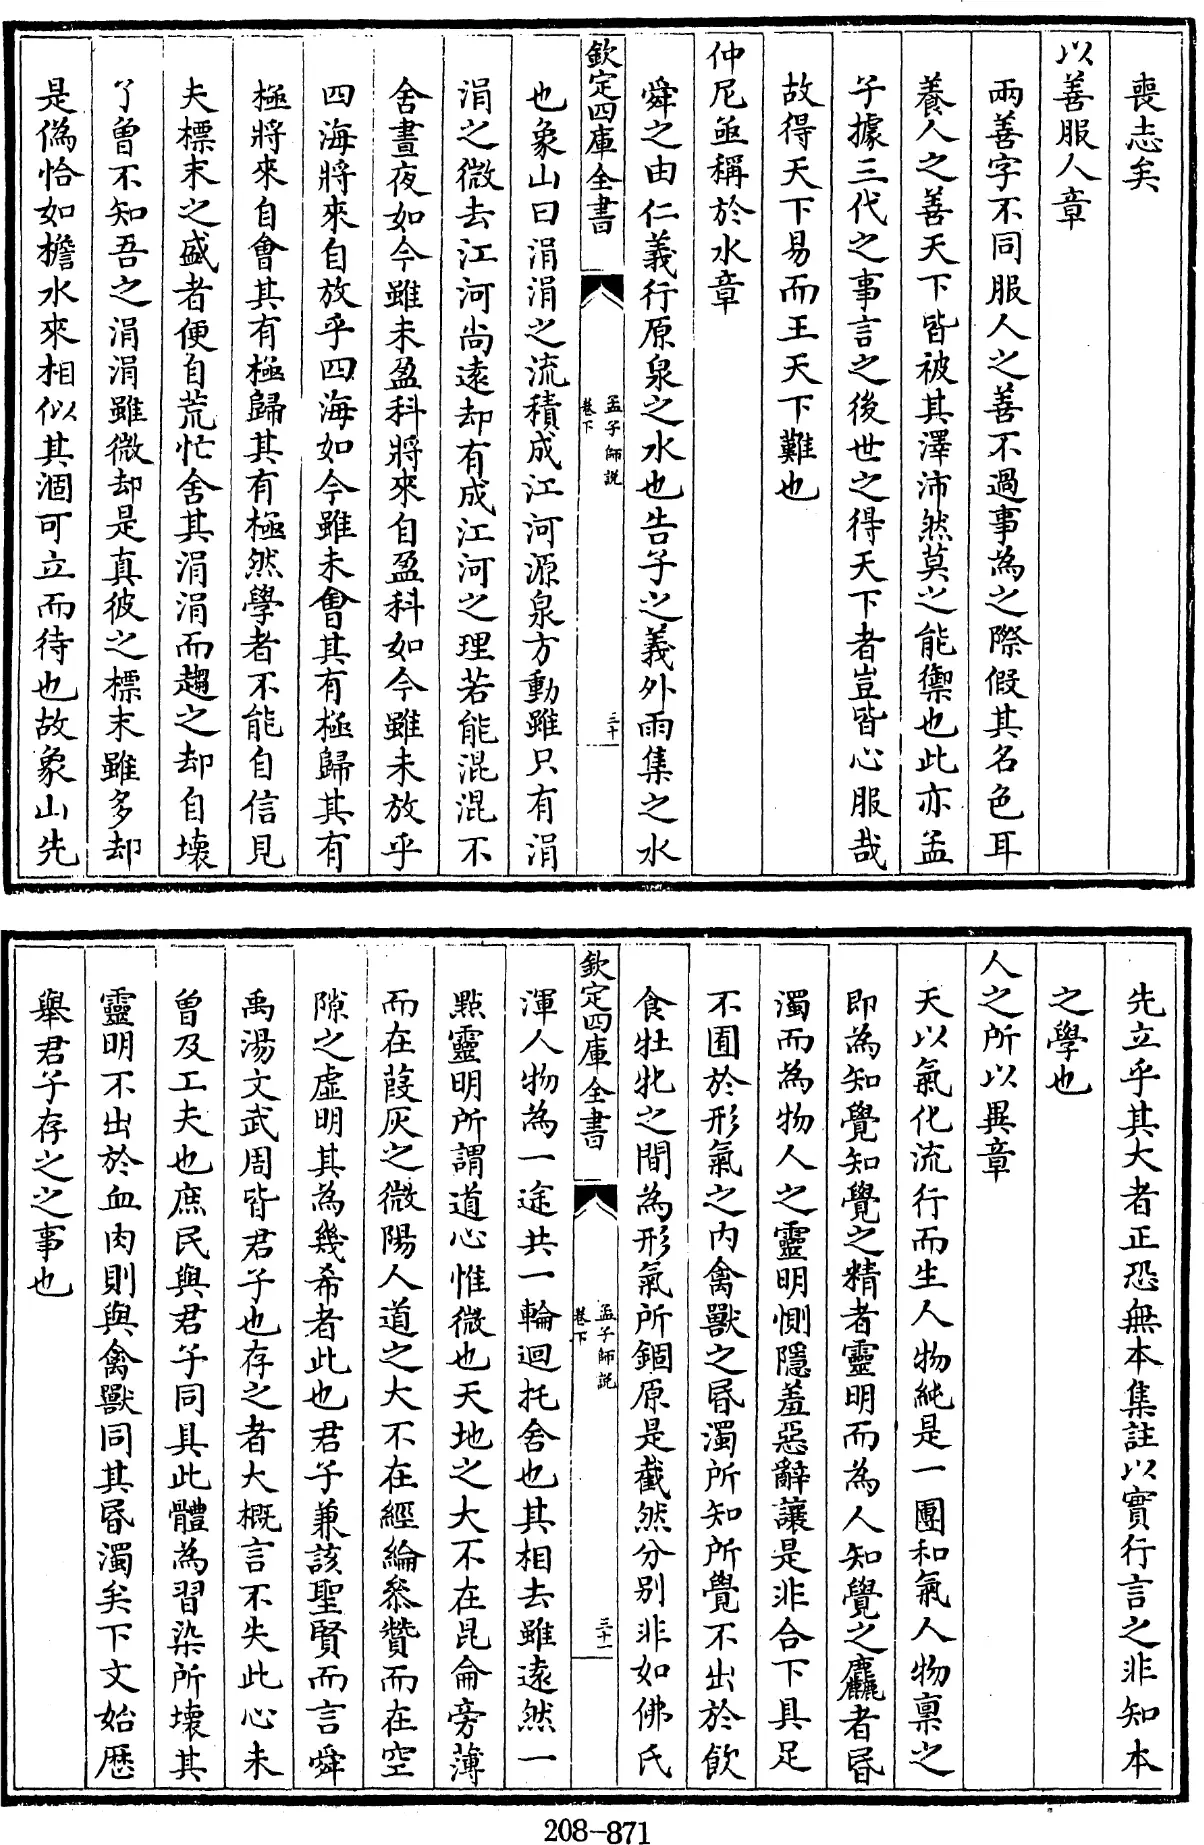 喪志矣
以善服人章
兩善字不同服人之善不過事為之際假其名色耳
養人之善天下皆被其澤沛然莫之能禦也此亦孟
子據三代之事言之後世之得天下者豈皆心服哉
故得天下易而王天下難也
仲尼亟稱於水章
舜之由仁義行原泉之水也告子之義外雨集之水
欽定四庫全書
孟子師說
卷下
三十
也象山曰涓涓之流積成江河源泉方動雖只有涓
涓之微去江河尚遠却有成江河之理若能混混不
舍晝夜如今雖未盈科將來自盈科如今雖未放乎
四海將來自放乎四海如今雖未㑹其有極歸其有
極將來自會其有極歸其有極然學者不能自信見
夫標末之盛者便自荒忙舍其涓涓而趨之却自壞
了曾不知吾之涓涓雖微却是真彼之標末雖多却
是偽恰如檐水來相似其涸可立而待也故象山先
先立乎其大者正恐無本集註以實行言之非知本
之學也
人之所以異章
天以氣化流行而生人物純是一團和氣人物稟之
即為知覺知覺之精者靈明而為人知覺之麤者昏
濁而為物人之靈明惻隱羞惡辭讓是非合下具足
不囿於形氣之内禽獸之昏濁所知所覺不出於飲
食牡牝之間為形氣所錮原是截然分别非如佛氏
欽定四庫全書
孟子師說
卷下
三十一
渾人物為一途共一輪迴托舍也其相去雖遠然一
點靈明所謂道心惟微也天地之大不在昆侖旁薄
而在葭灰之微陽人道之大不在經綸叅贊而在空
隙之虛明其為幾希者此也君子兼該聖賢而言舜
禹湯文武周皆君子也存之者大概言不失此心未
曾及工夫也庶民與君子同具此體為習染所壞其
靈明不出於血肉則與禽獸同其昏濁矣下文始歴
舉君子存之之事也
208-871